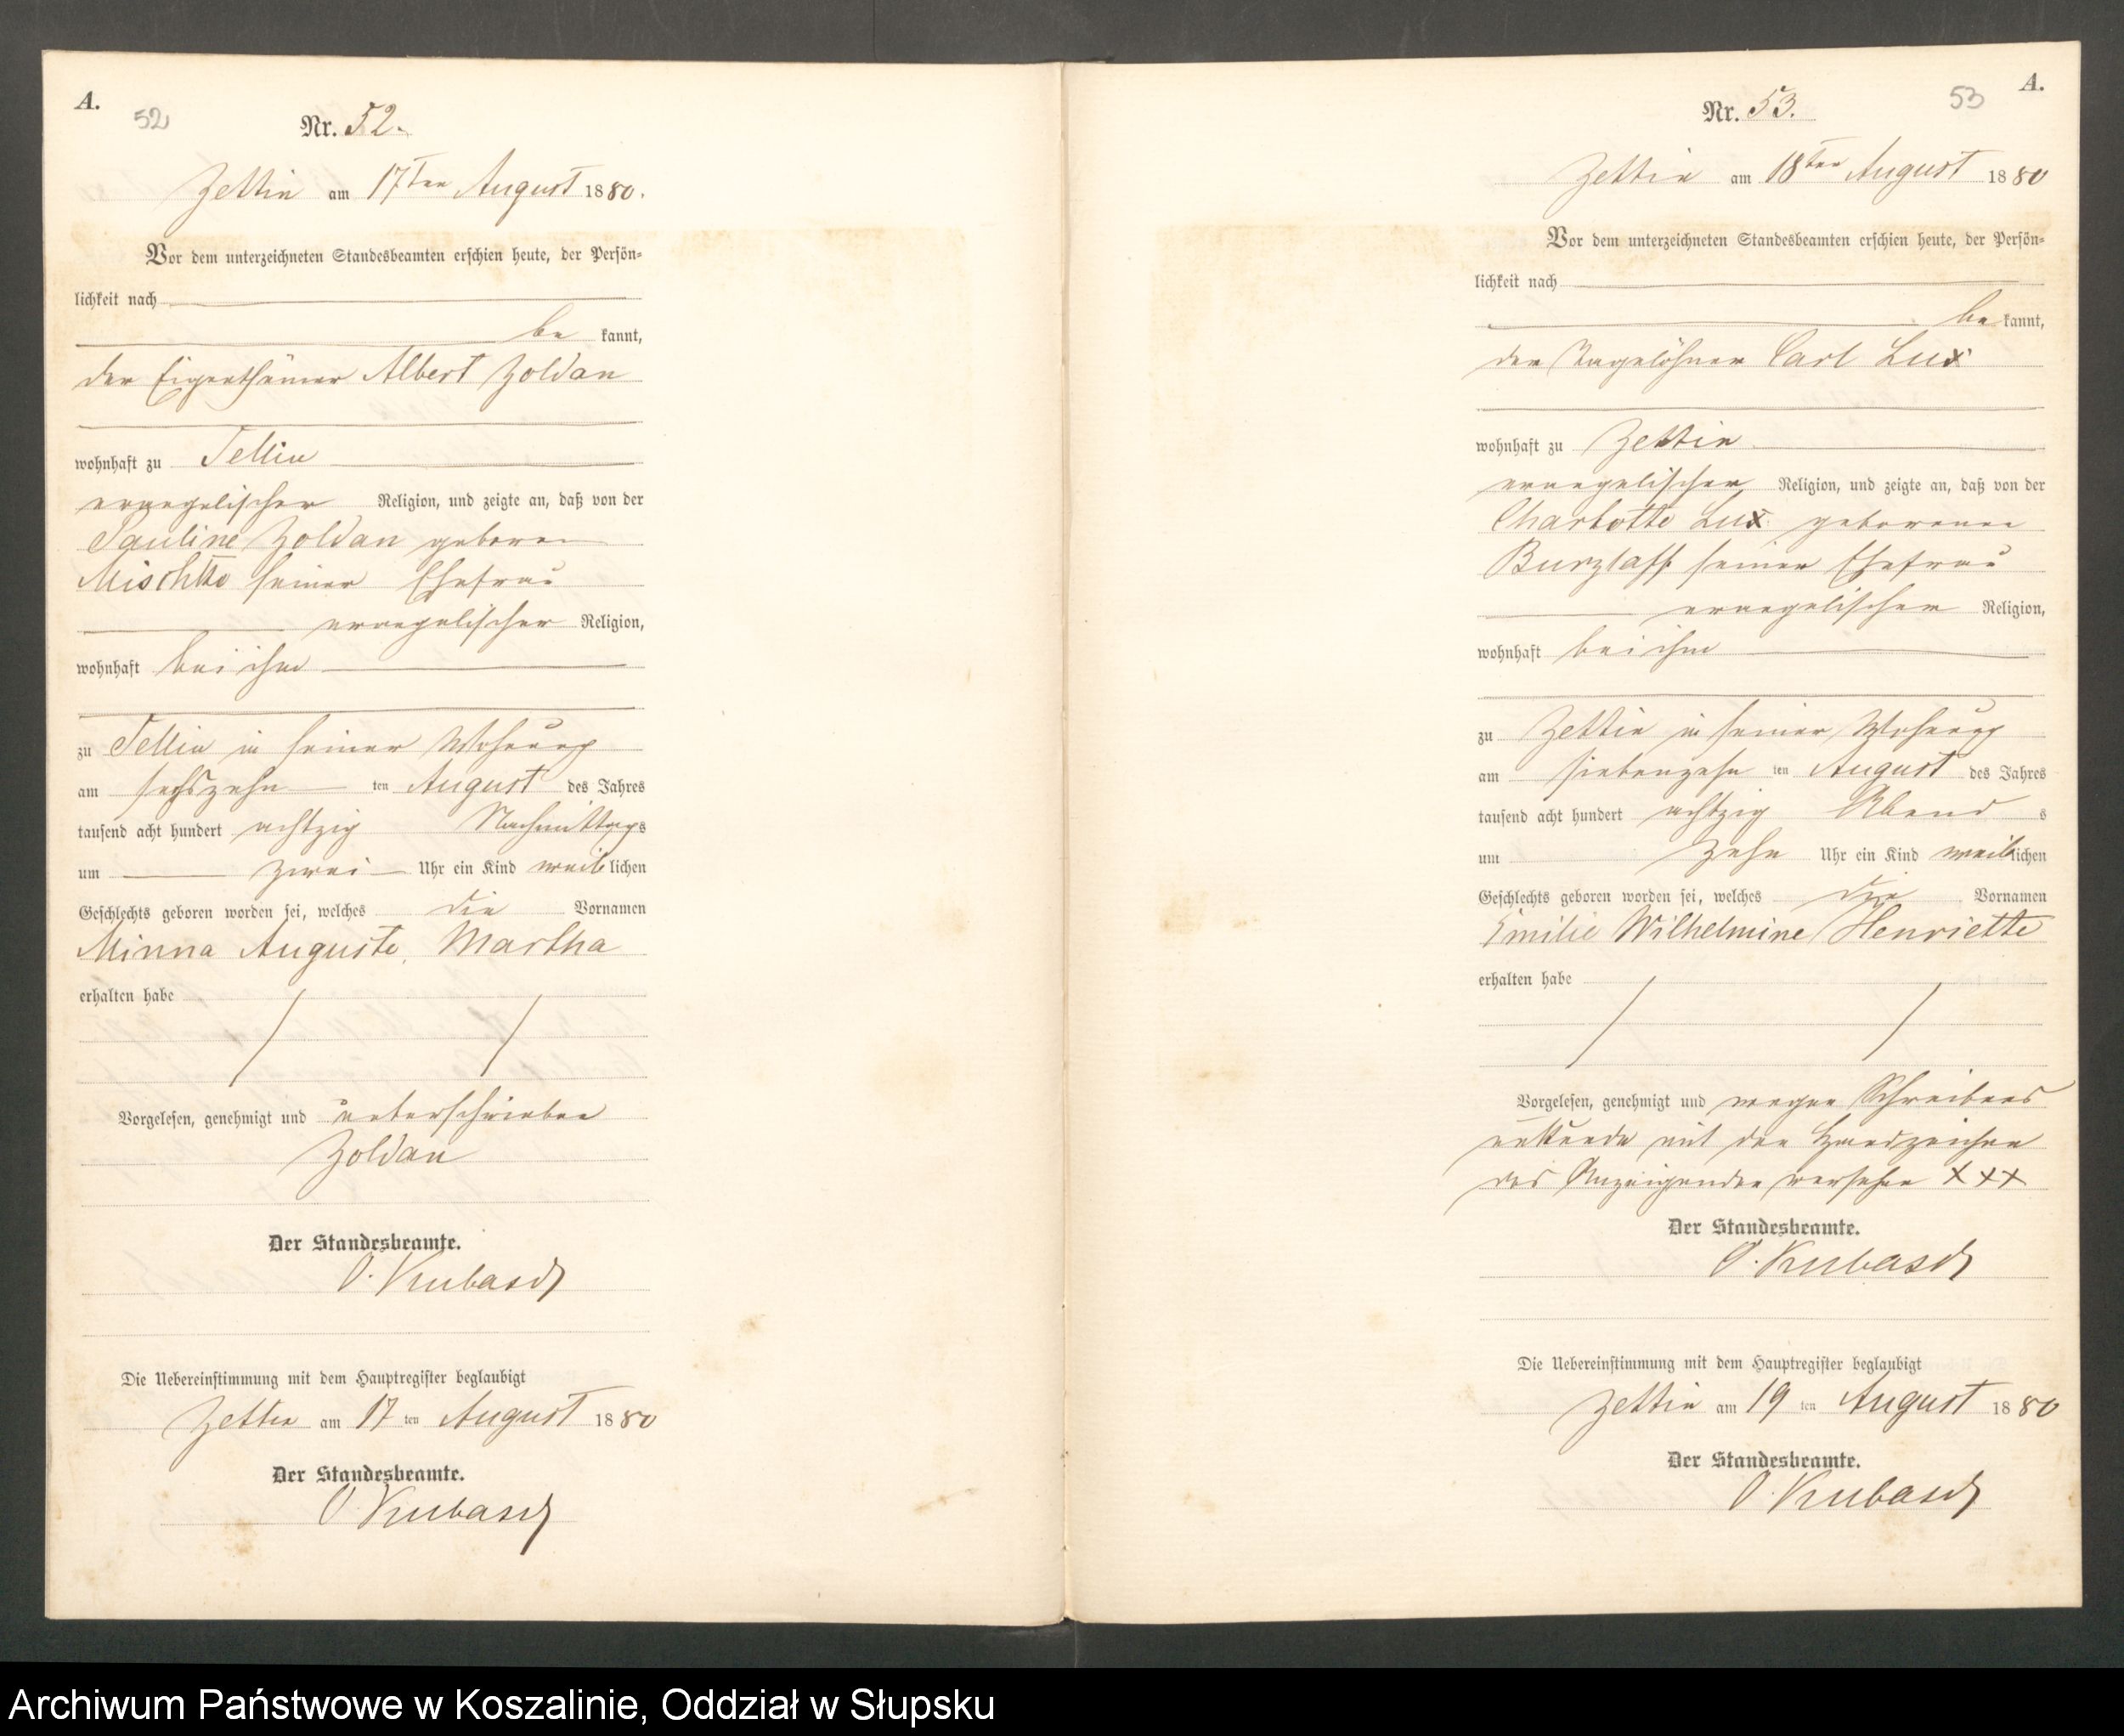 A.
52
Nr. 52.
Zettin am 17ten August 1880.
Vor dem unterzeichneten Standesbeamten erschien heute, der Persön-
lichkeit nach
be kannt,
der Eigenthümer Albert Zoldan
wohnhaft zu Tellin
evangelischer Religion, und zeigte an, daß von der
Pauline Zoldan geboren
seiner Ehefrau
evangelischer Religion,
wohnhaft bei ihm
zu Tellin in seiner Wohnung
am sechszehn ten August des Jahres
tausend acht hundert achtzig Nachmittags
um zwei Uhr ein Kind weiblichen
Geschlechts geboren worden sei, welches die Vornamen
Minna Auguste, Martha
erhalten habe
Vorgelesen, genehmigt und unterschrieben
Zoldan
Der Standesbeamte.
O. Kubasch
Die Uebereinstimmung mit dem Hauptregister beglaubigt
Zettin am 17 ten August 1880
Der Standesbeamte.
O. Kubasch
A.
53
Nr. 53.
Zettin am 18ten August 1880
Vor dem unterzeichneten Standesbeamten erschien heute, der Persön-
lichkeit nach
be kannt,
der Tagelöhner Carl Lux
wohnhaft zu Zettin
evangelischer Religion, und zeigte an, daß von der
Charlotte Lux geborenen
Burzlaff seiner Ehefrau
evangelischer Religion,
wohnhaft bei ihm
zu Zettin in seiner Wohnung
am siebenzehn ten August des Jahres
tausend acht hundert achtzig Abend s
um zehn Uhr ein Kind weiblichen
Geschlechts geboren worden sei, welches die Vornamen
Emilie Wilhelmine Henriette
erhalten habe
Vorgelesen, genehmigt und wegen Schreibens
unkunde mit den Handzeichen
des Anzeigenden versehen XXX
Der Standesbeamte.
O. Kubasch
Die Uebereinstimmung mit dem Hauptregister beglaubigt
Zettin am 19 ten August 1880
Der Standesbeamte.
O. Kubasch
Archiwum Państwowe w Koszalinie, Oddział w Słupsku